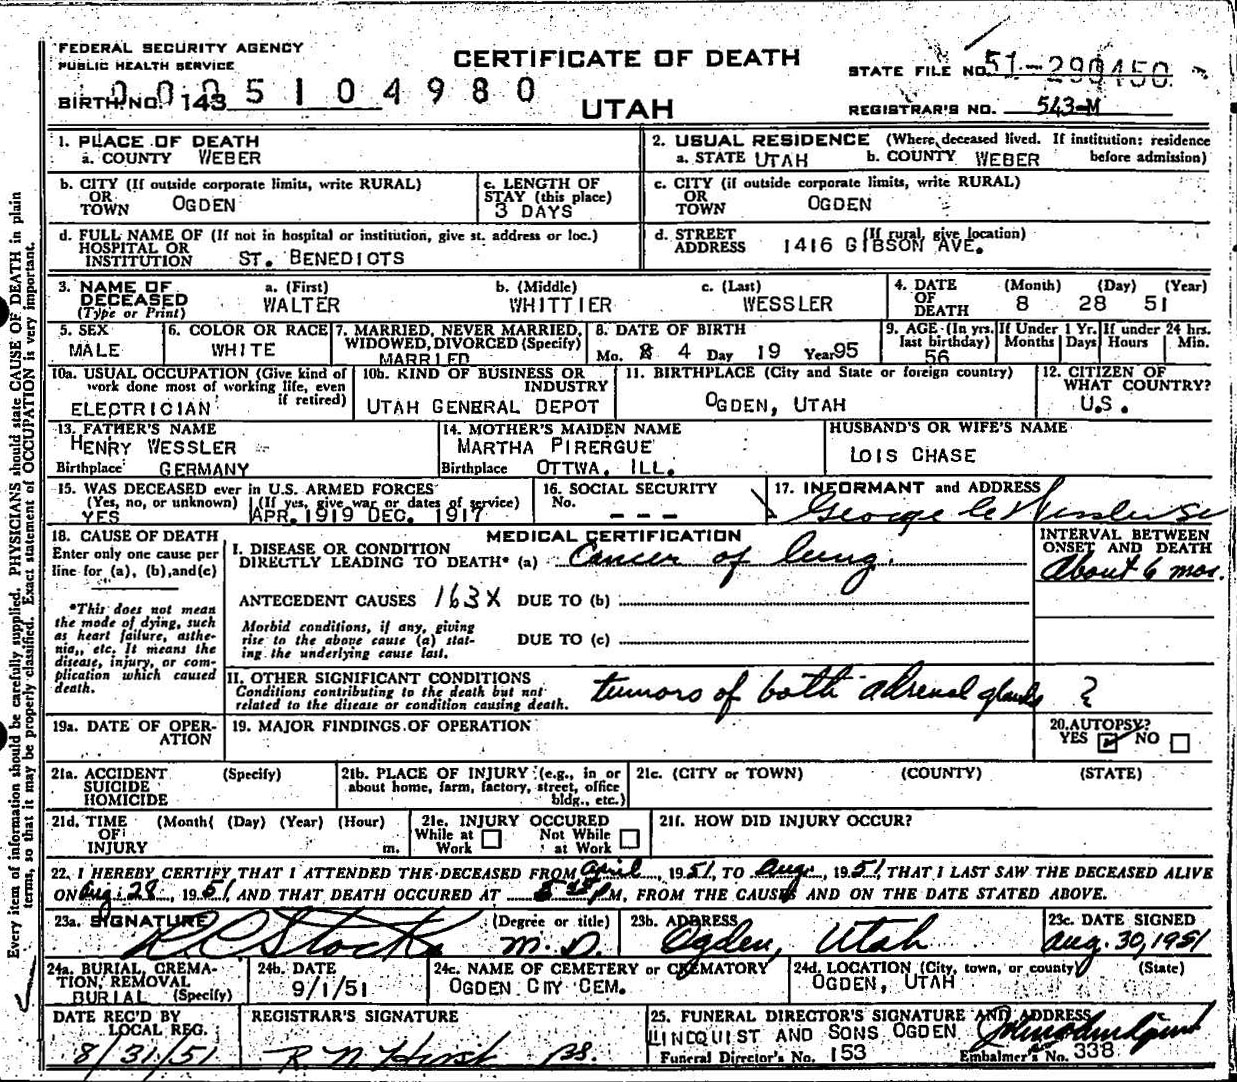 FEDERAL SECURITY AGENCY
PUBLIC HEALTH SERVICE
CERTIFICATE OF DEATH
UTAH
BIRTH NO. 143
0005104980
STATE FILE NO. 51-290450
REGISTRAR'S NO. 543-M
1. PLACE OF DEATH
a. COUNTY WEBER
2. USUAL RESIDENCE (Where deceased lived. If institution: residence before admission)
a. STATE UTAH b. COUNTY WEBER
b. CITY (If outside corporate limits, write RURAL)
OR
TOWN OGDEN
c. LENGTH OF
STAY (this place)
3 DAYS
c. CITY (if outside corporate limits, write RURAL)
OR
TOWN OGDEN
d. FULL NAME OF (If not in hospital or institution, give st. address or loc.)
HOSPITAL OR
INSTITUTION ST. BENEDICTS
d. STREET (If rural, give location)
ADDRESS 1416 GIBSON AVE.
3. NAME OF
DECEASED
(Type or Print)
a. (First) b. (Middle) c. (Last)
WALTER WHITTIER WESSLER
4. DATE
OF
DEATH
(Month) (Day) (Year)
8 28 51
5. SEX
MALE
6. COLOR OR RACE
WHITE
7. MARRIED, NEVER MARRIED,
WIDOWED, DIVORCED (Specify)
MARRIED
8. DATE OF BIRTH
Mo. 8 4 Day 19 Year 95
9. AGE (In yrs.
last birthday)
56
If Under 1 Yr.
Months Days
If under 24 hrs.
Hours Min.
10a. USUAL OCCUPATION (Give kind of
work done most of working life, even
if retired)
ELECTRICIAN
10b. KIND OF BUSINESS OR
INDUSTRY
UTAH GENERAL DEPOT
11. BIRTHPLACE (City and State or foreign country)
OGDEN, UTAH
12. CITIZEN OF
WHAT COUNTRY?
U.S.
13. FATHER'S NAME
HENRY WESSLER
Birthplace GERMANY
14. MOTHER'S MAIDEN NAME
MARTHA PIRERGUE
Birthplace OTTWA, ILL.
HUSBAND'S OR WIFE'S NAME
LOIS CHASE
15. WAS DECEASED ever in U.S. ARMED FORCES
(Yes, no, or unknown) (If yes, give war or dates of service)
YES APR. 1919 DEC. 1917
16. SOCIAL SECURITY
No. - - -
17. INFORMANT and ADDRESS
George
18. CAUSE OF DEATH
Enter only one cause per
line for (a), (b), and (c)
*This does not mean
the mode of dying, such
as heart failure, asthe-
nia,, etc. It means the
disease, injury, or com-
plication which caused
death.
MEDICAL CERTIFICATION
I. DISEASE OR CONDITION
DIRECTLY LEADING TO DEATH* (a) Cancer of lung.
ANTECEDENT CAUSES 163X DUE TO (b)
Morbid conditions, if any, giving
rise to the above cause (a) stat-
ing the underlying cause last.
DUE TO (c)
INTERVAL BETWEEN
ONSET AND DEATH
About 6 mos.
II. OTHER SIGNIFICANT CONDITIONS
Conditions contributing to the death but not
related to the disease or condition causing death.
tumors of both adrenal glands ?
19a. DATE OF OPER-
ATION
19. MAJOR FINDINGS OF OPERATION
20. AUTOPSY?
YES NO
21a. ACCIDENT (Specify)
SUICIDE
HOMICIDE
21b. PLACE OF INJURY (e.g., in or
about home, farm, factory, street, office
bldg., etc.)
21c. (CITY or TOWN) (COUNTY) (STATE)
21d. TIME (Month( (Day) (Year) (Hour)
OF
INJURY m.
21e. INJURY OCCURED
While at Work Not While at Work
21f. HOW DID INJURY OCCUR?
22. I HEREBY CERTIFY THAT I ATTENDED THE DECEASED FROM April, 1951, TO Aug., 1951, THAT I LAST SAW THE DECEASED ALIVE
ON Aug. 28, 1951 AND THAT DEATH OCCURED AT M, FROM THE CAUSE AND ON THE DATE STATED ABOVE.
23a. SIGNATURE (Degree or title)
M. D.
23b. ADDRESS
Ogden, Utah
23c. DATE SIGNED
Aug. 30, 1951
24a. BURIAL, CREMA-
TION, REMOVAL
BURIAL (Specify)
24b. DATE
9/1/51
24c. NAME OF CEMETERY or CREMATORY
OGDEN CITY CEM.
24d. LOCATION (City, town, or county) (State)
OGDEN, UTAH
DATE REC'D BY
LOCAL REG.
8/31/51
REGISTRAR'S SIGNATURE
25. FUNERAL DIRECTOR'S SIGNATURE AND ADDRESS
LINDQUIST AND SONS OGDEN
Funeral Director's No. 153 Embalmer's No. 338
Every item of information should be carefully supplied. PHYSICIANS should state CAUSE OF DEATH in plain
terms, so that it may be properly classified. Exact statement of OCCUPATION is very important.